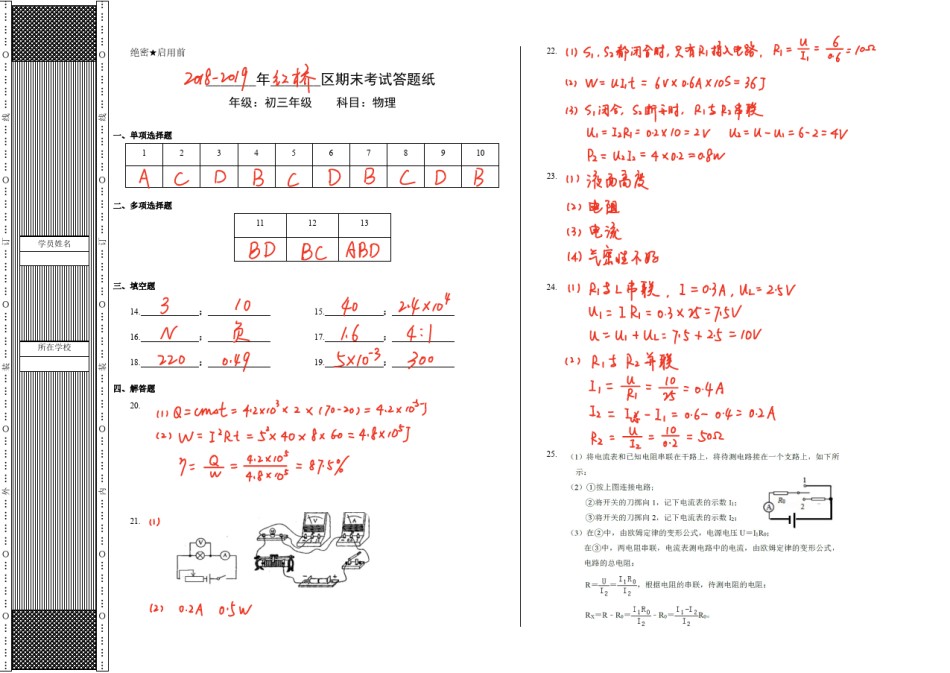 绝密★启用前
2018-2019 年 红桥 区期末考试答题纸
年级：初三年级 科目：物理
一、单项选择题
1 2 3 4 5 6 7 8 9 10
A C D B C D B C D B
二、多项选择题
11 12 13
BD BC ABD
三、填空题
14. 3 ; 10 15. 40 ; 2.4×10⁴
16. N ; 负 17. 1.6 ; 4:1
18. 220 ; 0.49 19. 5×10⁻³ ; 300
四、解答题
20. (1) Q=cmΔt=4.2×10³×2×(70-20)=4.2×10⁵J
(2) W=I²Rt=5²×40×8×60=4.8×10⁵J
η=Q/W=4.2×10⁵/4.8×10⁵=87.5%
21. (1)
V
A
V
A
(2) 0.2A 0.5W
学员姓名
所在学校
线
订
装
外
线
订
装
内
22. (1) S₁, S₂都闭合时, 只有R₁接入电路, R₁=U/I₁=6/0.6=10Ω
(2) W=UI₁t=6V×0.6A×10S=36J
(3) S₁闭合, S₂断开时, R₁与R₂串联
U₁=I₂R₁=0.2×10=2V U₂=U-U₁=6-2=4V
P₂=U₂I₂=4×0.2=0.8W
23. (1) 液面高度
(2) 电阻
(3) 电流
(4) 气密性不好
24. (1) R₁与L串联, I=0.3A, UL=2.5V
U₁=IR₁=0.3×25=7.5V
U=U₁+UL=7.5+2.5=10V
(2) R₁与R₂并联
I₁=U/R₁=10/25=0.4A
I₂=I总-I₁=0.6-0.4=0.2A
R₂=U/I₂=10/0.2=50Ω
25. （1）将电流表和已知电阻串联在干路上，将待测电路接在一个支路上，如下所
示：
（2）①按上图连接电路；
②将开关的刀掷向1，记下电流表的示数 I₁；
③将开关的刀掷向2，记下电流表的示数 I₂；
1
R₀
2
A
（3）在②中，由欧姆定律的变形公式，电源电压 U＝I₁R₀；
在③中，两电阻串联，电流表测电路中的电流，由欧姆定律的变形公式，
电路的总电阻：
R=U/I₂=I₁R₀/I₂，根据电阻的串联，待测电阻的电阻：
RX=R﹣R₀=I₁R₀/I₂﹣R₀=I₁-I₂/I₂R₀。